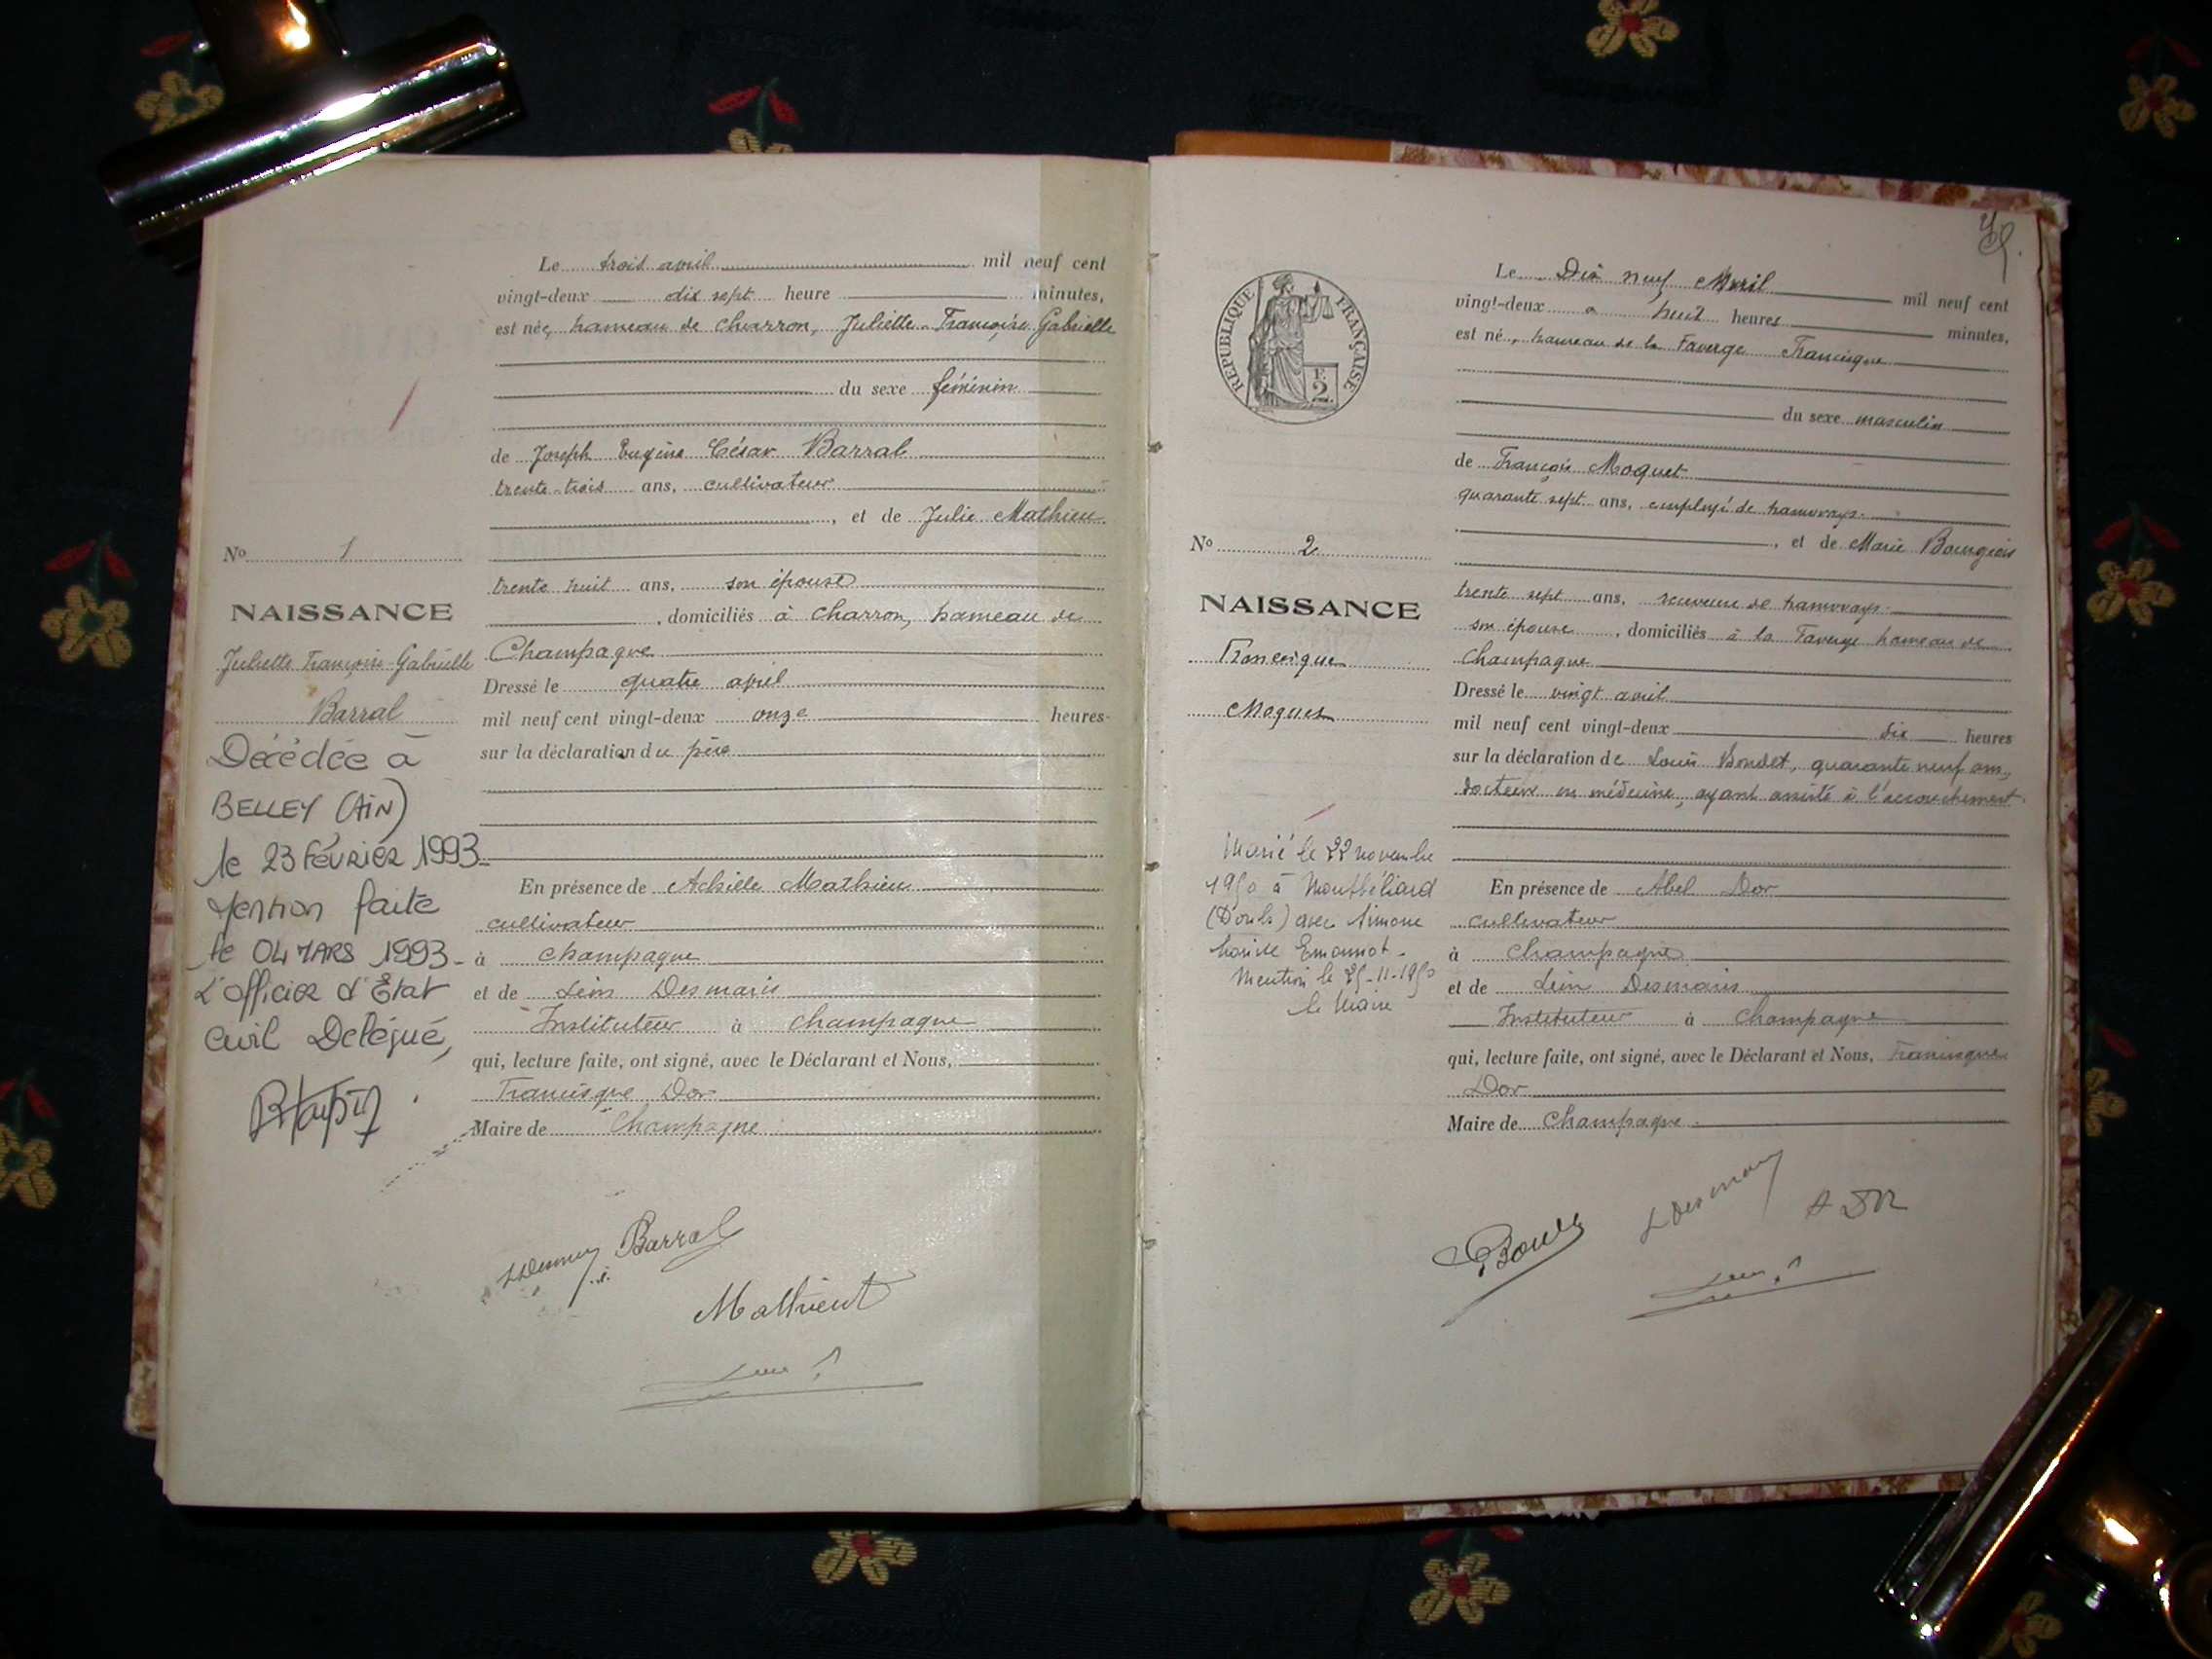 Le trois avril mil neuf cent
vingt-deux dix sept heure minutes,
est née, hameau de Charron, Juliette Françoise Gabrielle
du sexe féminin
de Joseph Eugène César Barral
trente-trois ans, cultivateur
, et de Julie Mathieu
trente huit ans, son épouse
, domiciliés à Charron, hameau de
Champagne
Dressé le quatre avril
mil neuf cent vingt-deux onze heures
sur la déclaration du père
En présence de Achille Mathieu
cultivateur
à Champagne
et de Léon Desmaris
Instituteur à Champagne
qui, lecture faite, ont signé, avec le Déclarant et Nous,
Francisque Dor
Maire de Champagne
No 1
NAISSANCE
Juliette Françoise Gabrielle
Barral
Décédée à
BELLEY (AIN)
le 23 Février 1993
Mention faite
le 04 MARS 1993
L'officier d'État
Civil Délégué,
Barral
Mathieu
Le Dix neuf Avril mil neuf cent
vingt-deux à huit heures minutes,
est né, hameau de la Faverge Francisque
du sexe masculin
de François Moquet
quarante sept ans, employé de tramways
, et de Marie Bourgeois
trente sept ans, receveuse de tramways
son épouse , domiciliés à la Faverge hameau de
Champagne
Dressé le vingt avril
mil neuf cent vingt-deux dix heures
sur la déclaration de Louis Bondet, quarante neuf ans,
docteur en médecine, ayant assisté à l'accouchement
En présence de Abel Dor
cultivateur
à Champagne
et de Léon Desmaris
Instituteur à Champagne
qui, lecture faite, ont signé, avec le Déclarant et Nous, Francisque
Dor
Maire de Champagne
RÉPUBLIQUE FRANÇAISE
No 2
NAISSANCE
Francisque
Moquet
Marié le 22 novembre
1950 à Montbéliard
(Doubs) avec Simone
Emonnot
Mention le 25-11-1950
le Maire
L Desmaris
A DOR